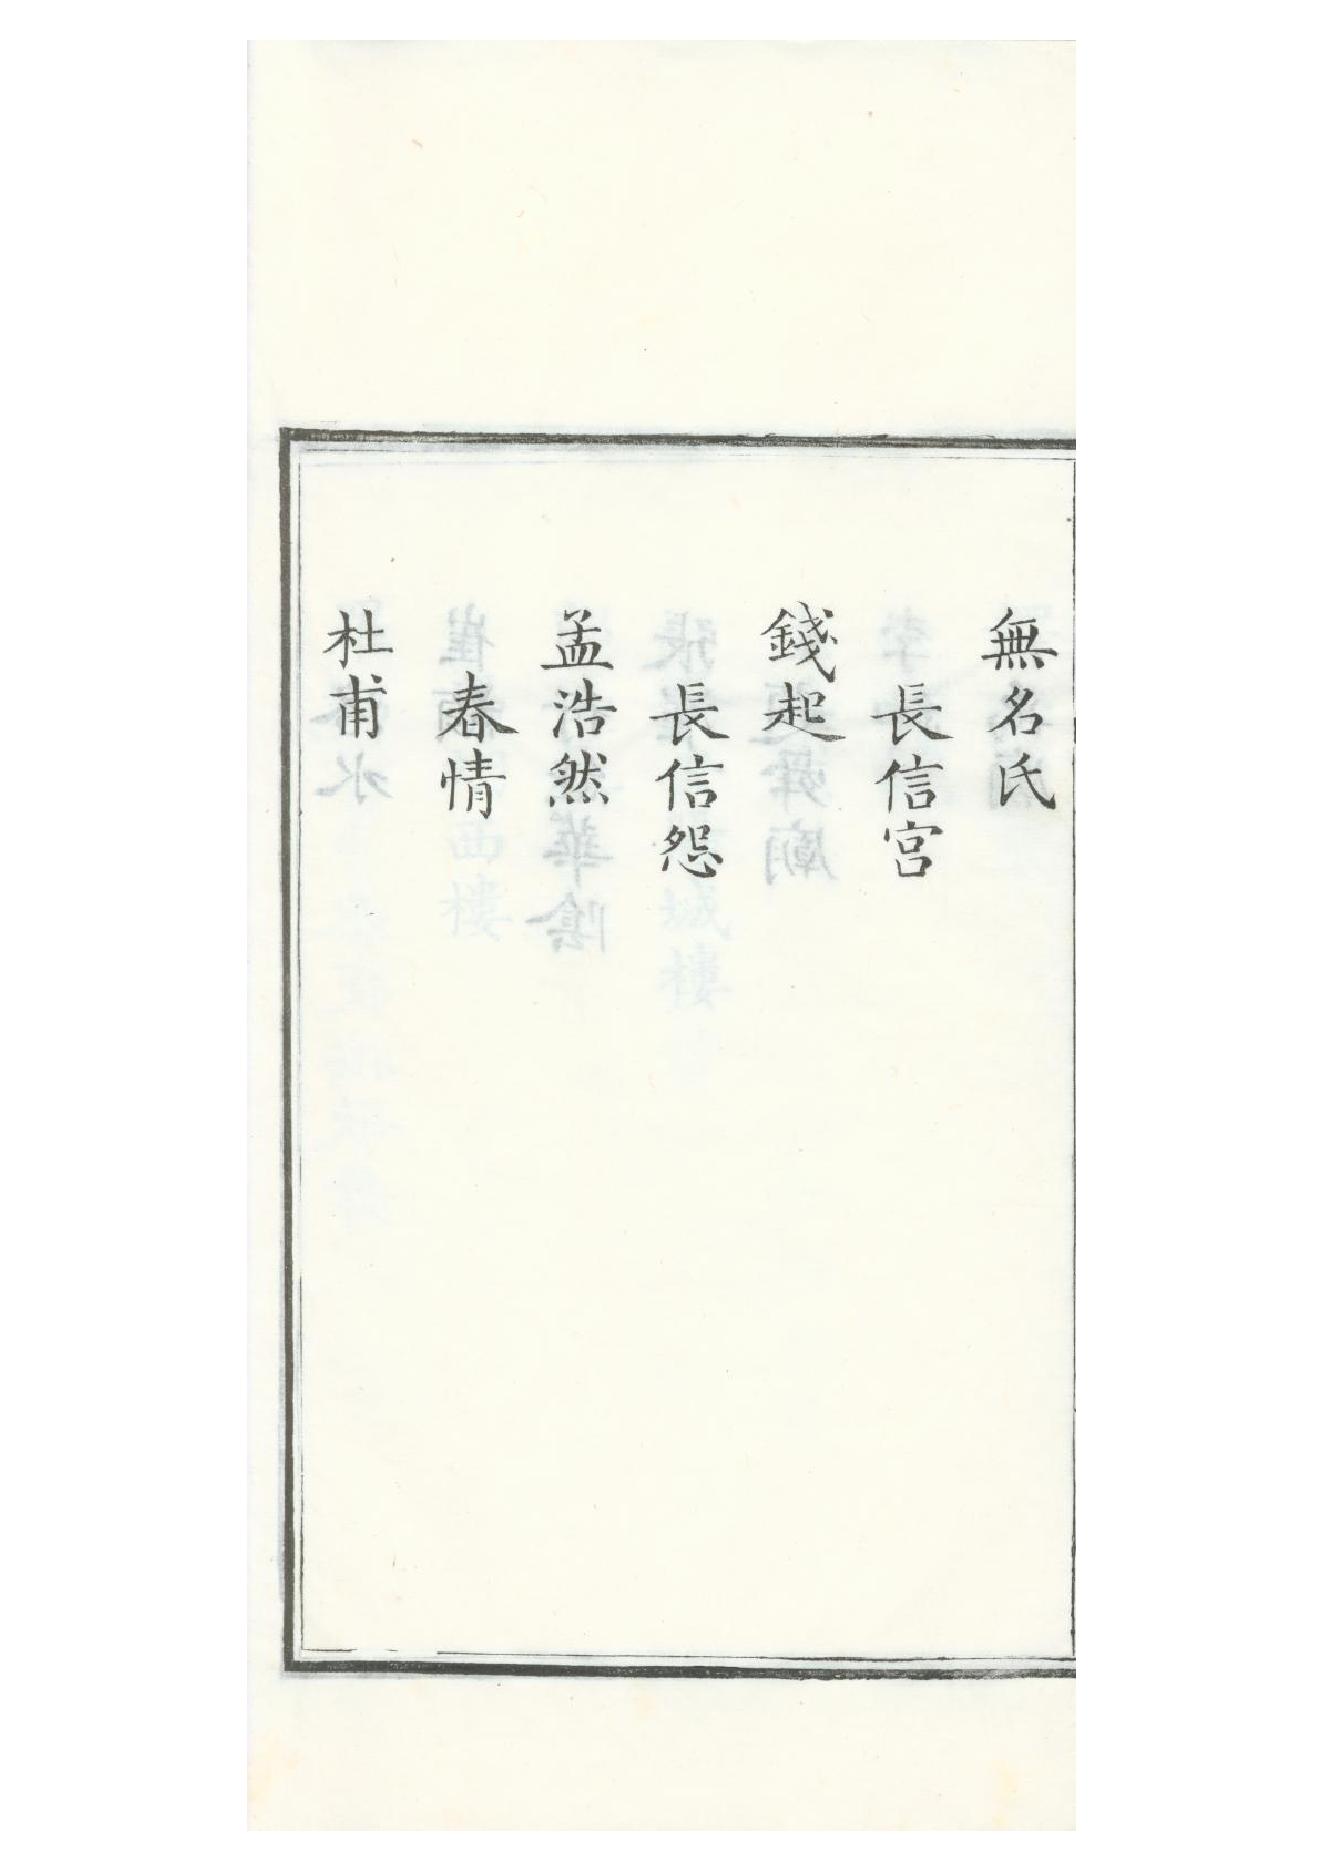 無名氏
長信宮
錢起
長信怨
孟浩然
春情
杜甫